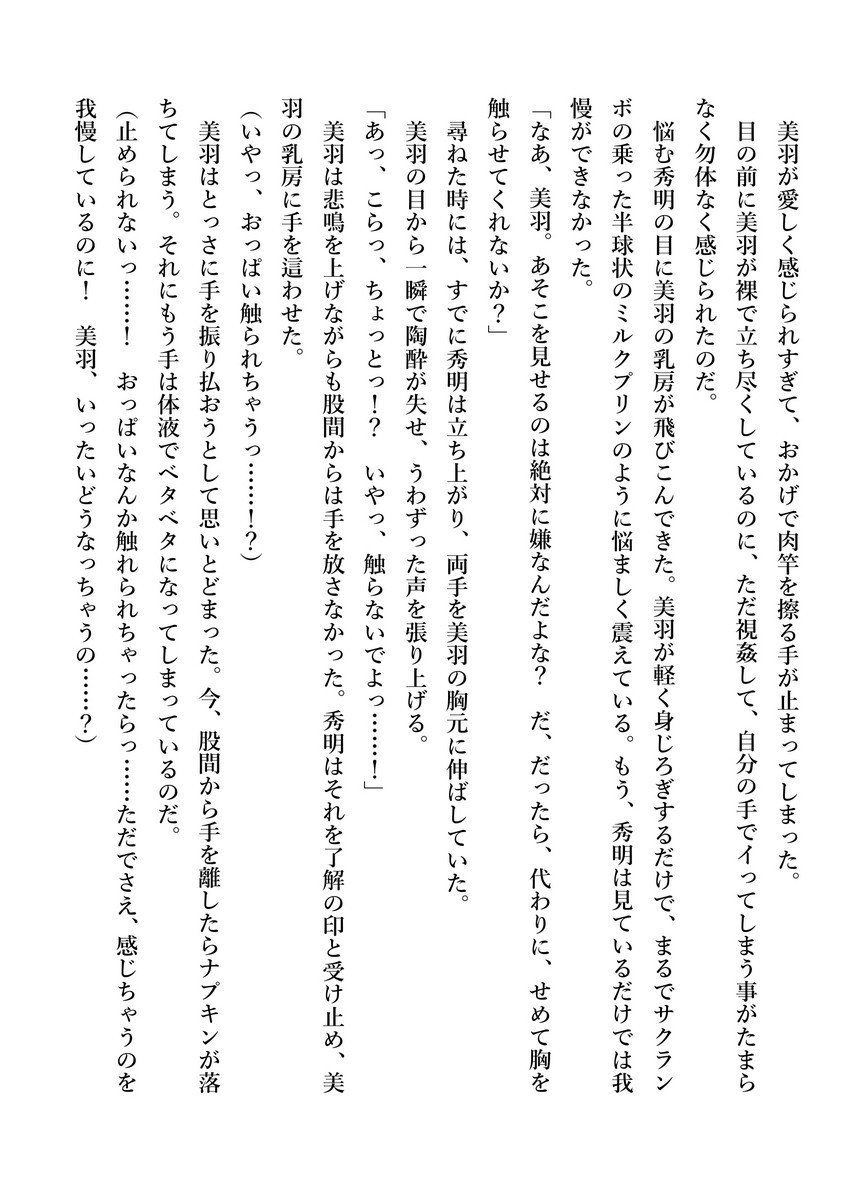 美羽が愛しく感じられすぎて、おかげで肉竿を擦る手が止まってしまった。
　目の前に美羽が裸で立ち尽くしているのに、ただ視姦して、自分の手でイってしまう事がたまら
なく勿体なく感じられたのだ。
　悩む秀明の目に美羽の乳房が飛びこんできた。美羽が軽く身じろぎするだけで、まるでサクラン
ボの乗った半球状のミルクプリンのように悩ましく震えている。もう、秀明は見ているだけでは我
慢ができなかった。
「なあ、美羽。あそこを見せるのは絶対に嫌なんだよな？　だ、だったら、代わりに、せめて胸を
触らせてくれないか？」
　尋ねた時には、すでに秀明は立ち上がり、両手を美羽の胸元に伸ばしていた。
　美羽の目から一瞬で陶酔が失せ、うわずった声を張り上げる。
「あっ、こらっ、ちょっとっ！？　いやっ、触らないでよっ……！」
　美羽は悲鳴を上げながらも股間からは手を放さなかった。秀明はそれを了解の印と受け止め、美
羽の乳房に手を這わせた。
（いやっ、おっぱい触られちゃうっ……！？）
　美羽はとっさに手を振り払おうとして思いとどまった。今、股間から手を離したらナプキンが落
ちてしまう。それにもう手は体液でベタベタになってしまっているのだ。
（止められないっ……！　おっぱいなんか触れられちゃったらっ……ただでさえ、感じちゃうのを
我慢しているのに！　美羽、いったいどうなっちゃうの……？）